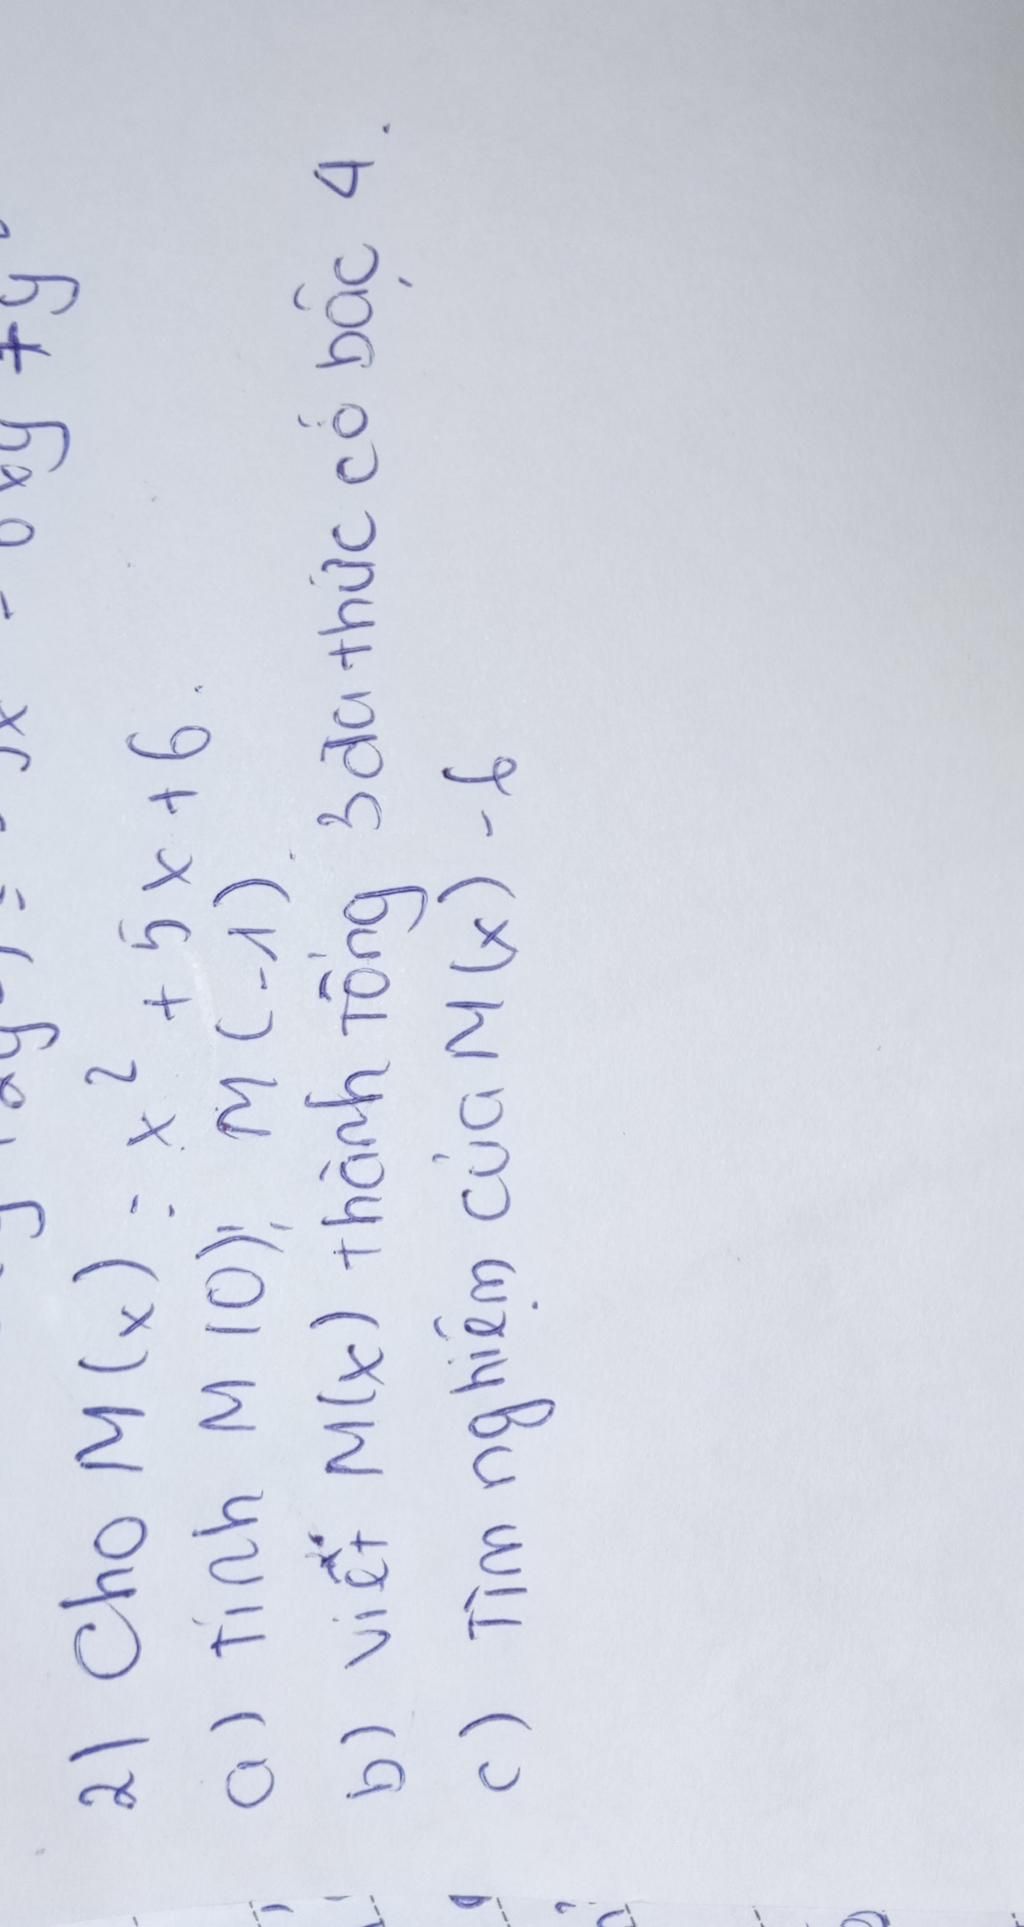 2) Cho M(x) = x² + 5x + 6.
a) Tính M(0); M(-1).
b) viết M(x) thành Tổng 3 đa thức có bậc 4.
c) Tìm nghiệm của M(x) - 6